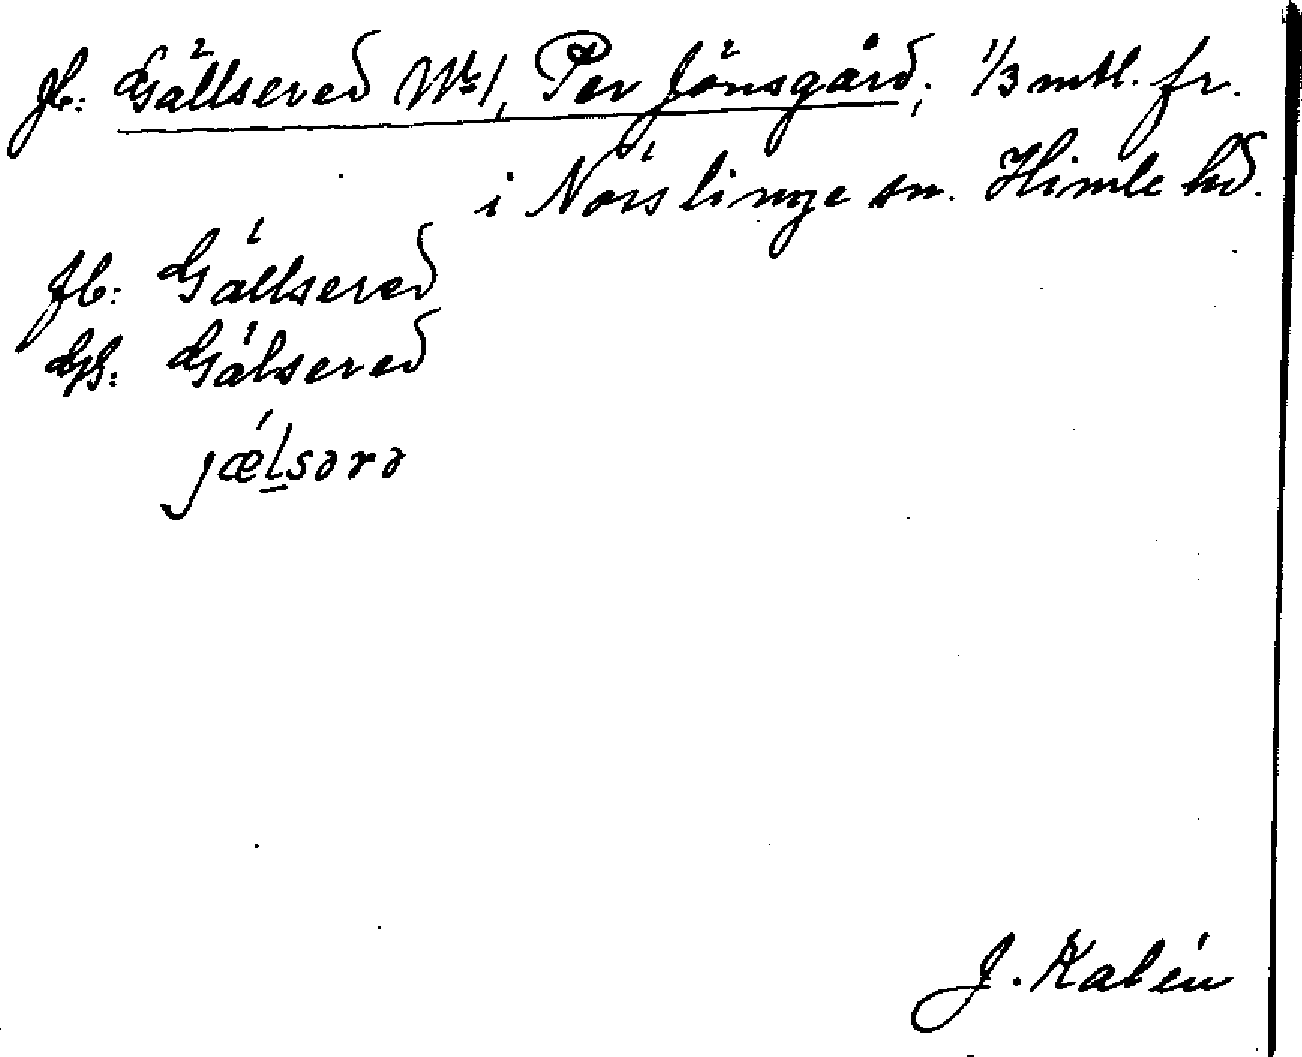 Jb: Gällsered No 1, Per Jönsgård; 1/3 mtl. fr.
i Nörslinge sn. Himle hd.
Jb: Gällsered
GS: Gälsered
jælsərə
J. Kalén